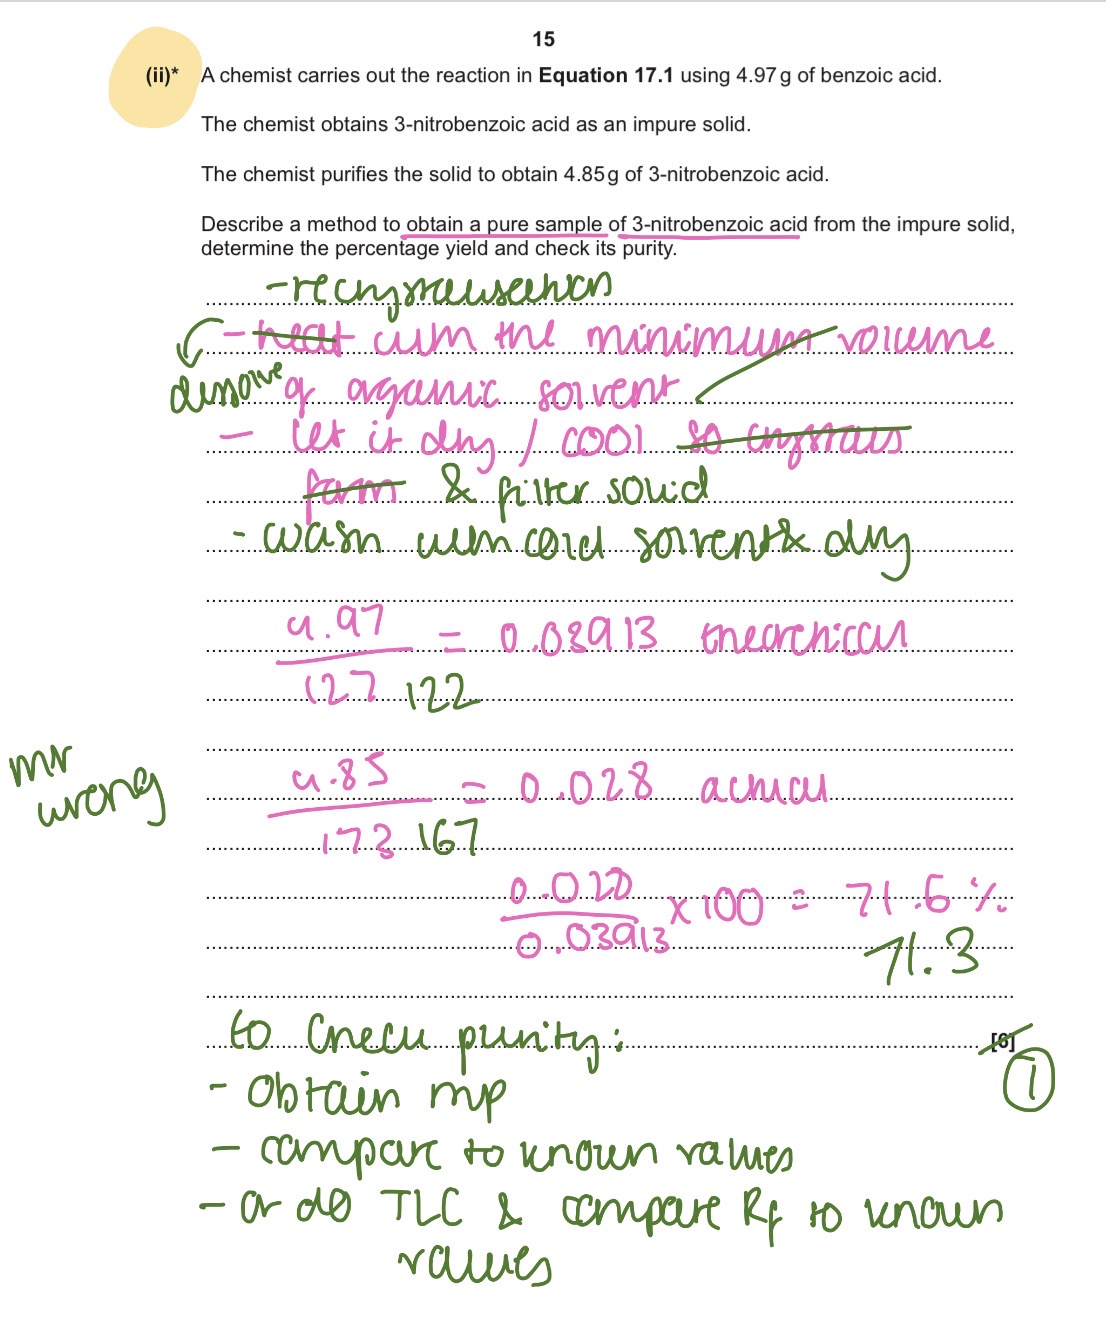 15
(ii)* A chemist carries out the reaction in Equation 17.1 using 4.97 g of benzoic acid.
The chemist obtains 3-nitrobenzoic acid as an impure solid.
The chemist purifies the solid to obtain 4.85 g of 3-nitrobenzoic acid.
Describe a method to obtain a pure sample of 3-nitrobenzoic acid from the impure solid,
determine the percentage yield and check its purity.
- recrystallisation
- heat with the minimum volume
dissolve of organic solvent
- let it dry / cool so crystals
form & filter solid
- wash with cold solvent & dry
4.97
= 0.03913 theoretical
127 122
mr
wrong
4.85
= 0.028 actual
173 167
0.028
× 100 = 71.6 %
0.03913
71.3
to check purity:
[6]
1
- obtain mp
- compare to known values
- or do TLC & compare Rf to known
values